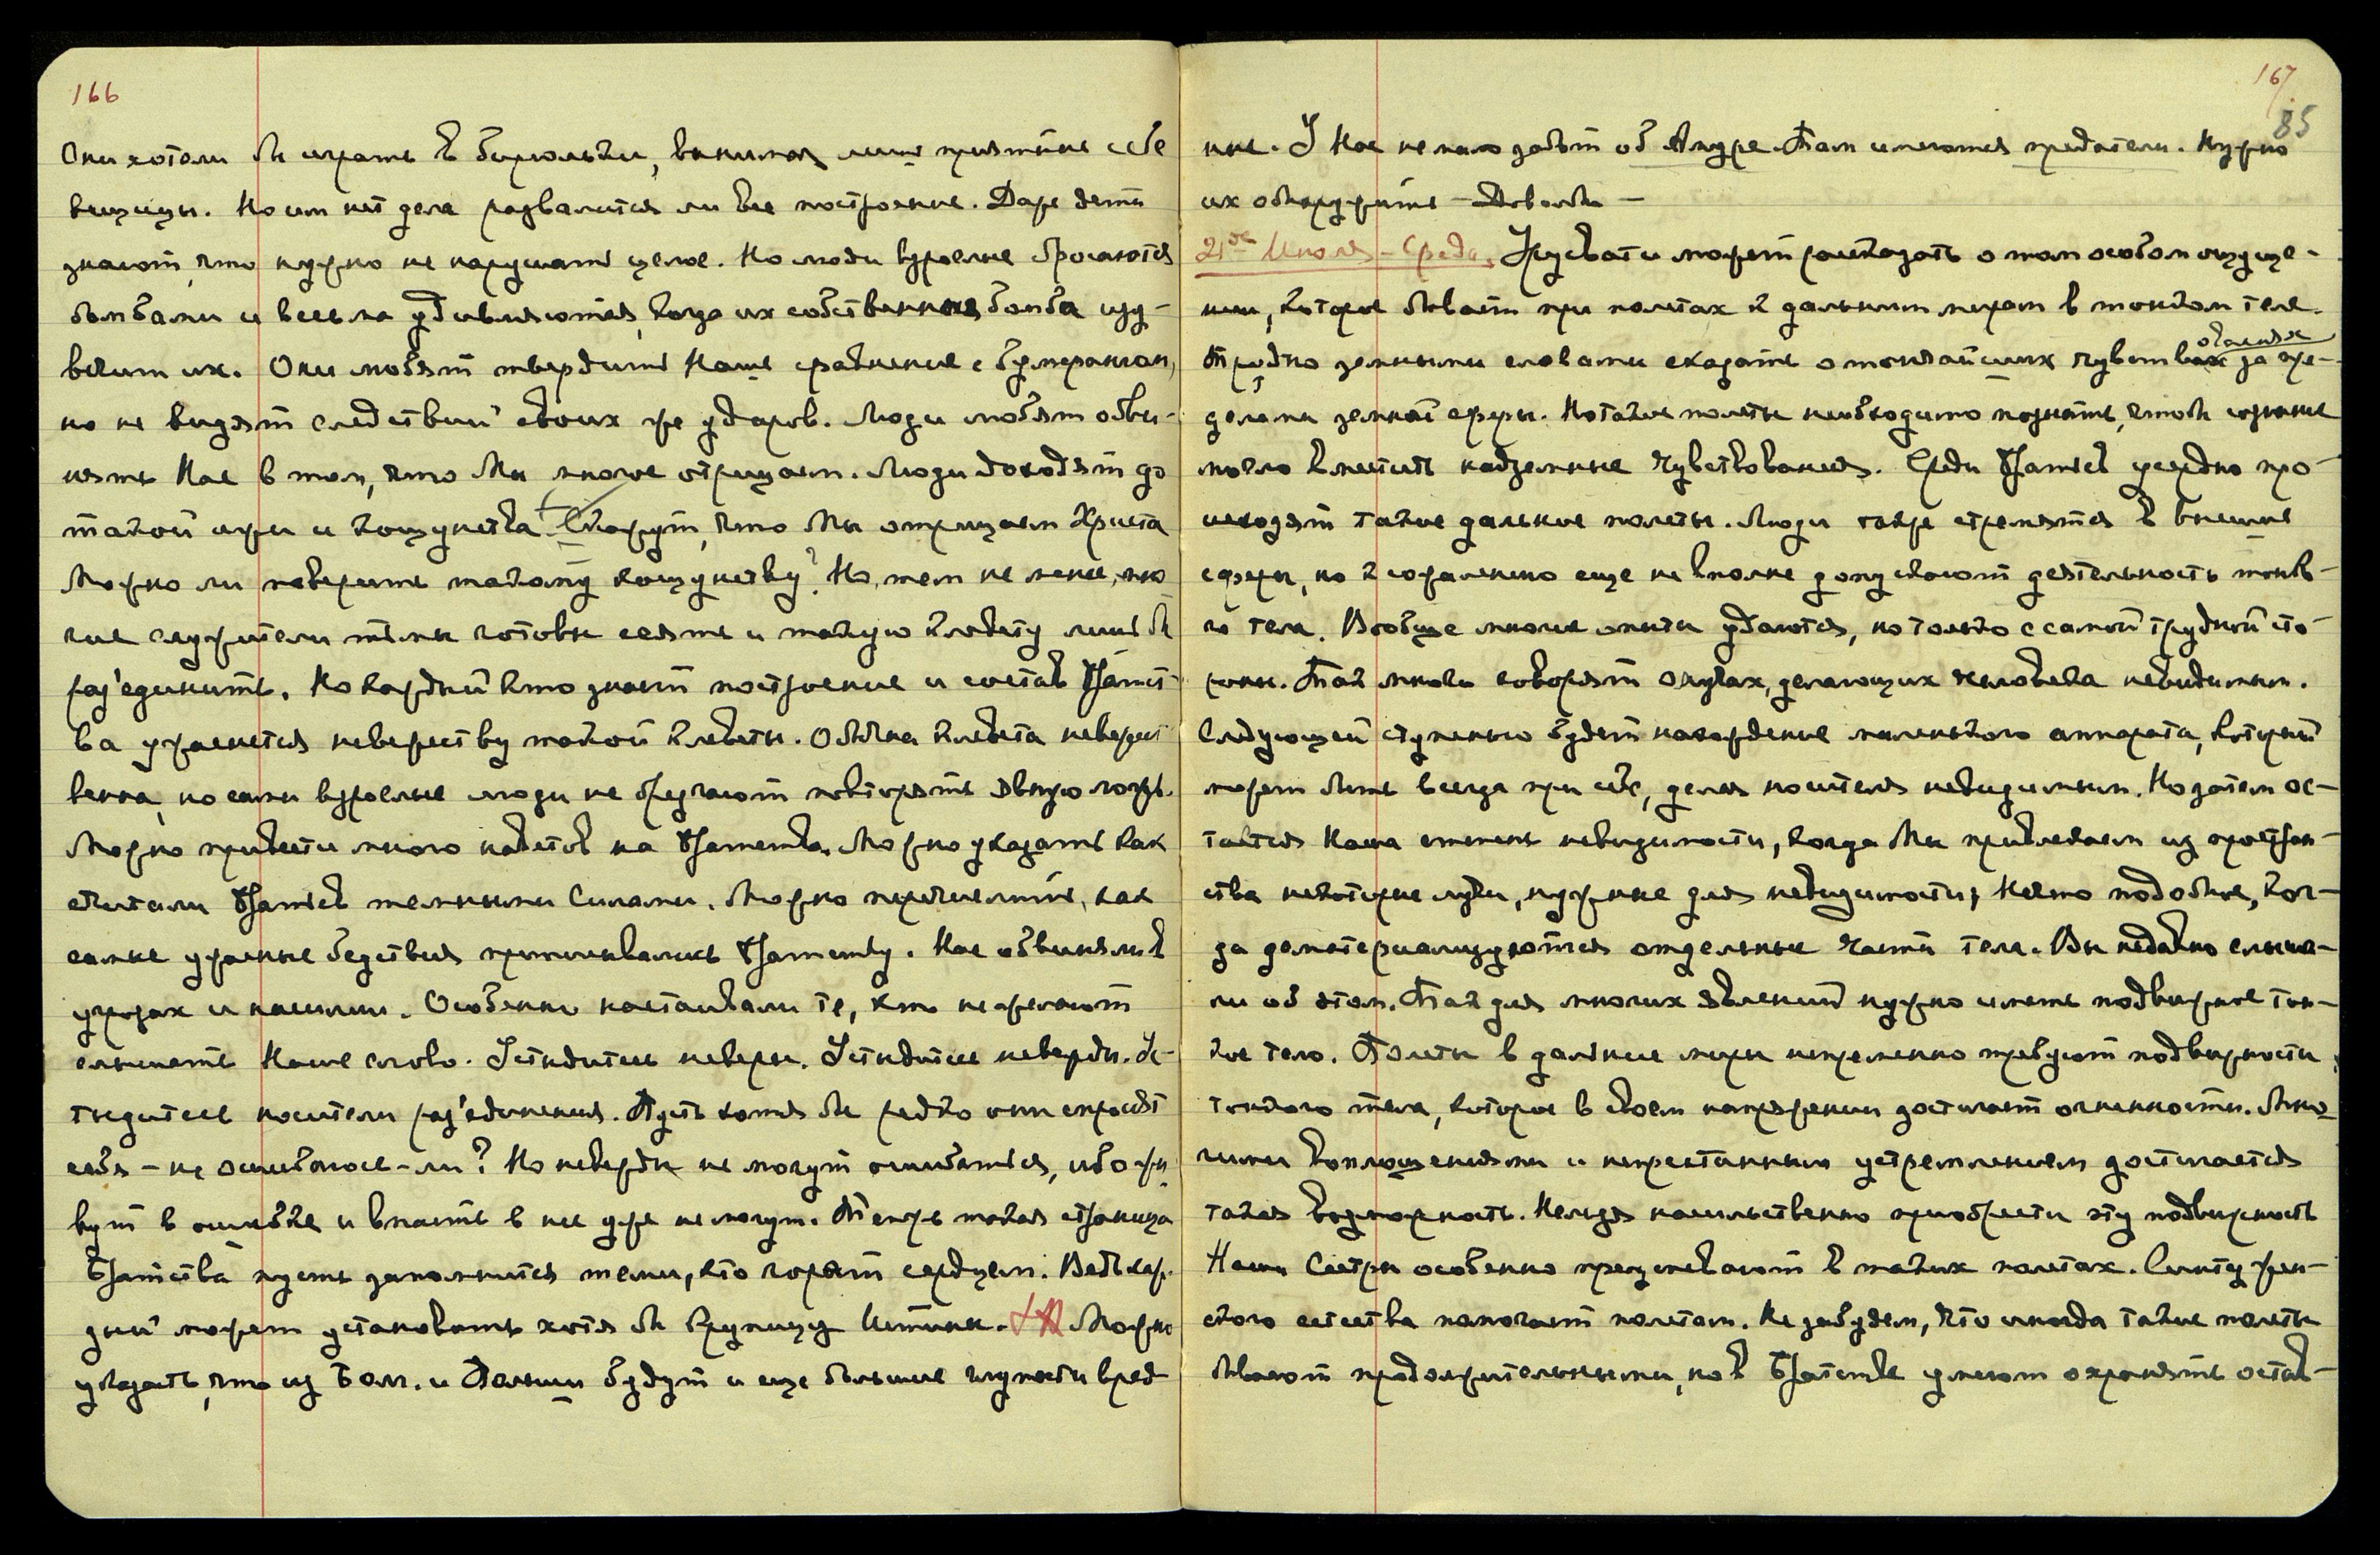 166
Они хотели бы играть в бирюльки, вынимая лишь приятные себе
вещицы. Но им нет дела развалится ли все построение. Даже дети
знают, что нужно не нарушать целое. Но люди взрослые бросаются
бомбами и весьма удивляются, когда их собственная бомба изу-
вечит их. Они любят твердить Наше сравнение с бумерангом,
но не видят следствий своих же ударов. Люди любят обви-
нять Нас в том, что Мы многое отрицаем. Люди доходят до
такой лжи и кощунства. Скажут, что Мы отрицаем Христа
Можно ли поверить такому кощунству? Но, тем не менее, мно
гие служители тьмы готовы сеять и такую клевету лишь бы
раз'единить. Но каждый кто знает построение и состав Братст
ва ужаснется невежеству такой клеветы. Обычна клевета невежест
венна, но сами взрослые люди не брезгают повторять явную ложь.
Можно привести много наветов на Братство. Можно указать как
считали Братьев темными Силами. Можно перечислить, как
самые ужасные бедствия приписывались Братству. Нас обвиняли в
угрозах и насилии. Особенно настаивали те, кто не желают
слышать Наше слово. Устыдитесь неверы. Устыдитесь невежды. Ус-
тыдитесь носители раз'единения. Пусть хотя бы редко они спросят
себя - не ошибаюсь-ли? Но невежды не могут ошибаться, ибо жи
вут в ошибке и впасть в нее уже не могут. Теперь такая страница
Братства пусть запомнится теми, кто горят сердцем. Ведь каж-
дый может установить хотя бы крупицу Истины. Можно
указать, что из Болг. и Польши будут и еще большие глупости вред-
167
85
ные. У Нас не мало забот об Амуре. Там имеются предатели. Нужно
их обнаружить - Довольно -
21ое Июля - Среда. Урусвати может рассказать о том особом ощуще-
нии, которое бывает при полетах к дальним мирам в тонком теле.
Трудно земными словами сказать о тончайших чувствах за пре-
делами земной сферы. Но такие полеты необходимо познать, чтоб сознание
могло вместить надземные чувствования. Среди Братьев усердно про-
исходят такие дальние полеты. Люди также стремятся в внешние
сферы, но к сожалению еще не вполне допускают деятельность тонко-
го тела. Вообще многие опыты удаются, но только с самой трудной сто-
роны. Так много говорят о лучах, делающих человека невидимым.
Следующей ступенью будет нахождение маленького аппарата, который
может быть всегда при себе, делая носителя невидимым. Но затем ос-
тается Наша степень невидимости, когда Мы привлекаем из простран-
ства некоторые лучи, нужные для невидимости; Нечто подобное, ког-
да дематериализуются отдельные части тела. Вы недавно слыша-
ли об этом. Так для многих явлений нужно иметь подвижное тон-
кое тело. Полеты в дальние миры непременно требуют подвижности
тонкого тела, которое в своем напряжении достигает огненности. Мно-
гими воплощениями и непрестанным устремлением достигается
такая возможность. Нельзя насильственно приобрести эту подвижность
Наши Сестры особенно преуспевают в таких полетах. Синтез жен-
ского естества помогает полетам. Не забудем, что иногда такие полеты
бывают продолжительными, но в Братстве умеют охранять остав-